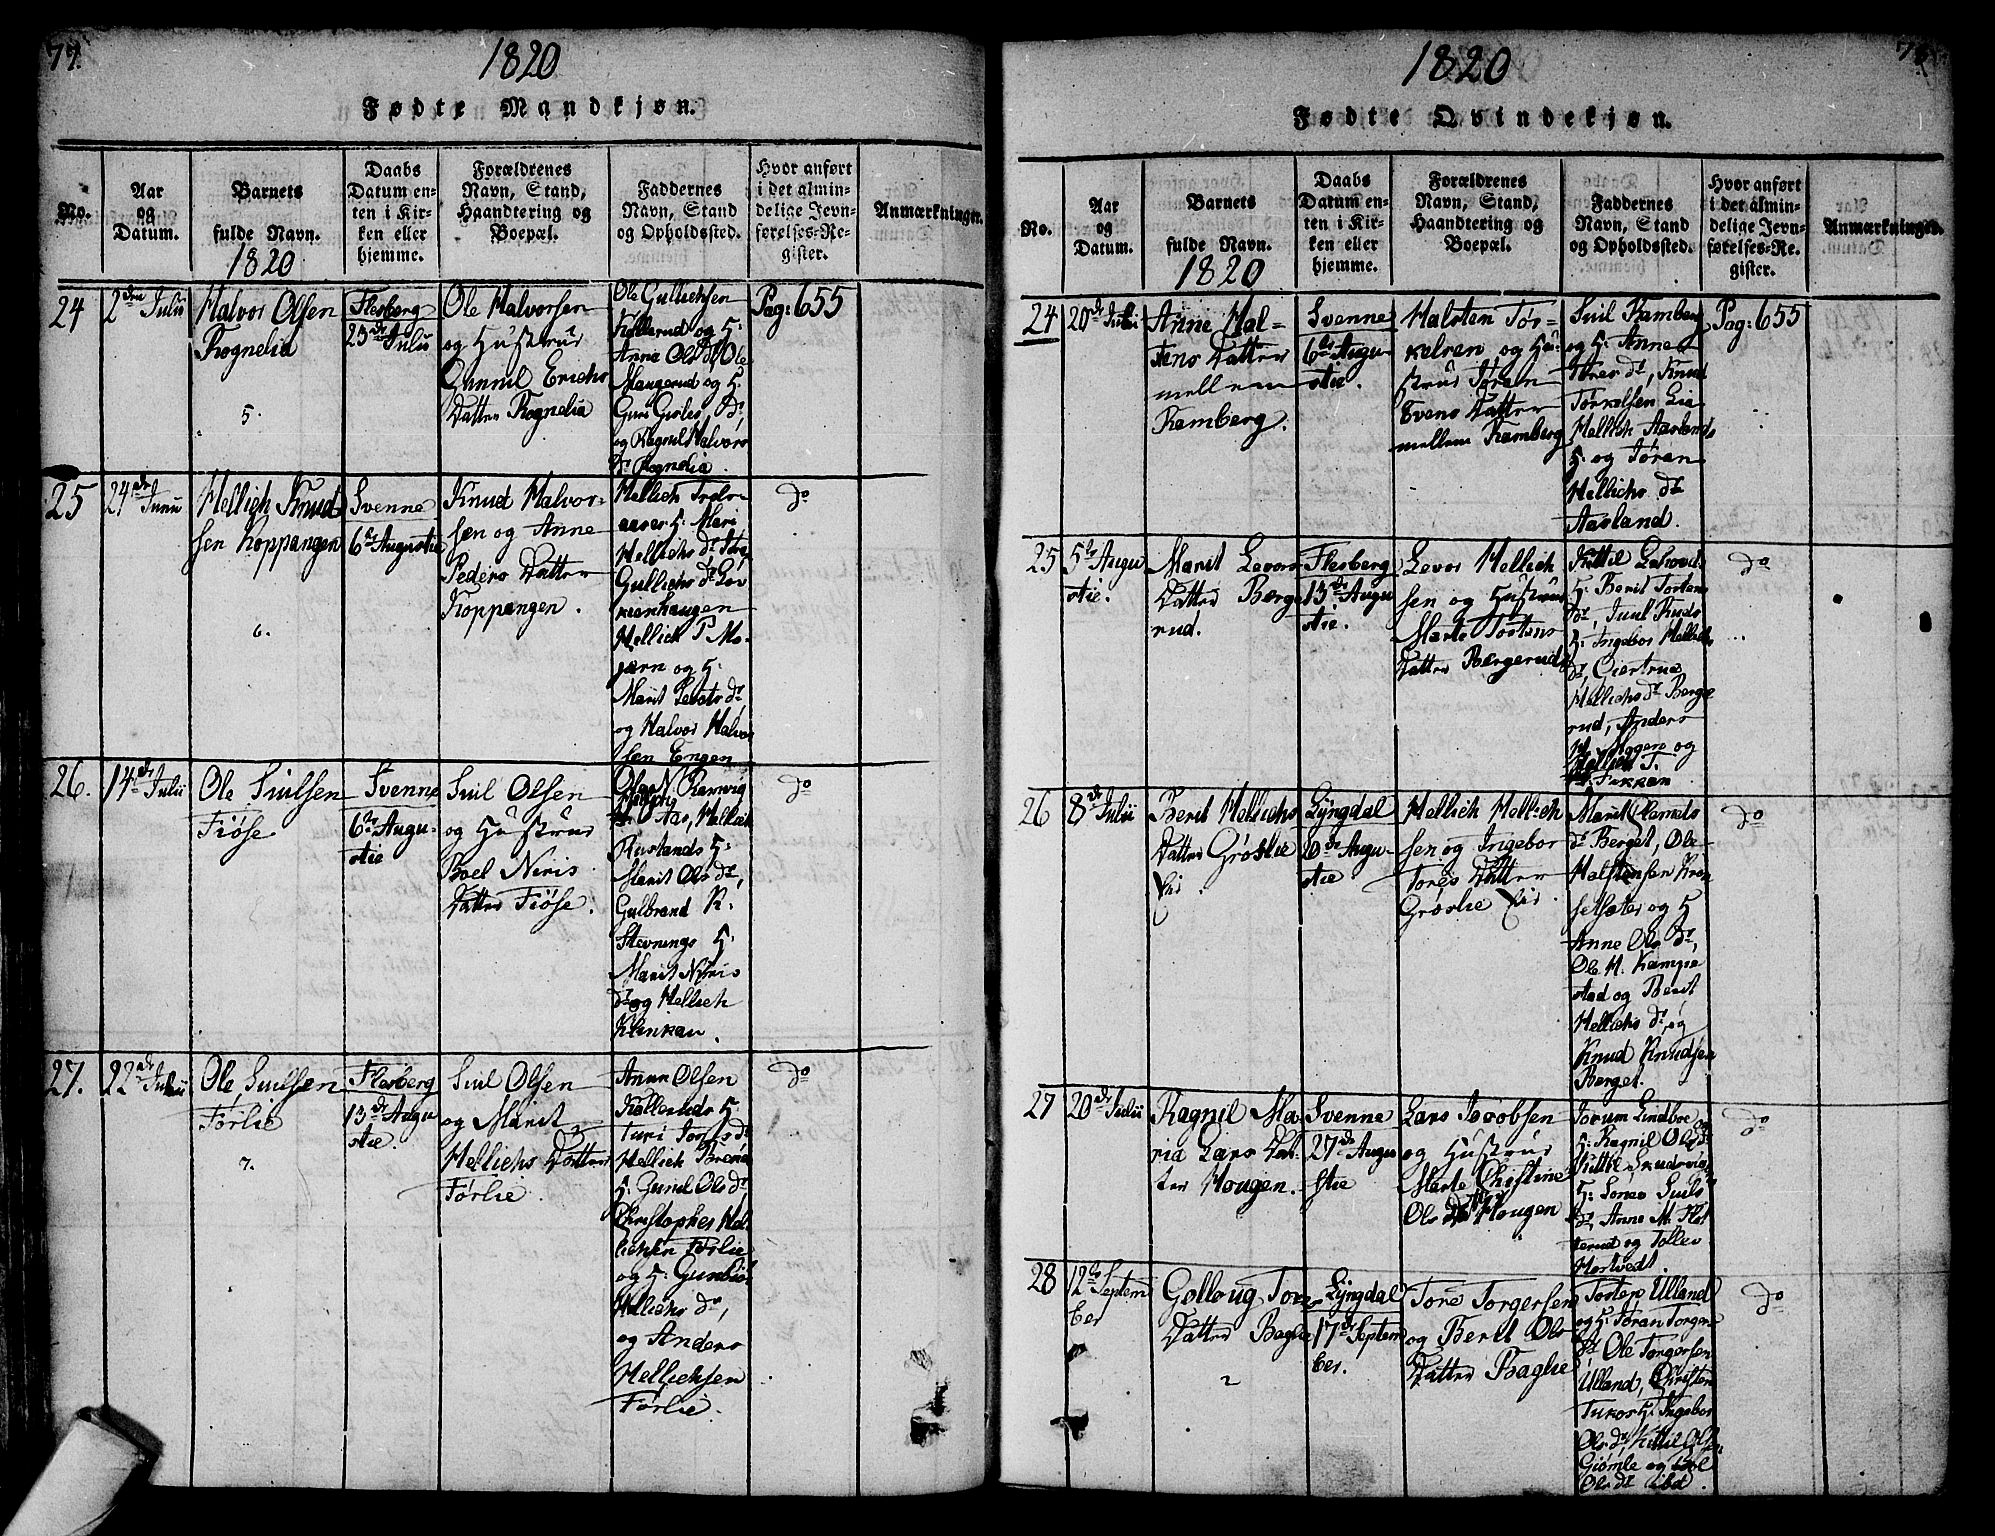 77.
1820
Fødte Mandkjøn.
No.
Aar
og
Datum.
Barnets
fulde Navn.
1820
Daabs
Datum en-
ten i Kir-
ken eller
hjemme.
Forældrenes
Navn, Stand,
Haandtering og
Boepæl.
Faddernes
Navn, Stand
og Opholdssted.
Hvor anført
i det almin-
delige Jevn-
førelses-Re-
gister.
Anmærkninger.
24
2den Julii
Halvor Olsen
Rognelia
5.
Flesberg
23de Julii
Ole Halvorsen
og Hustrue
Gunnil Erichs
Datter Rognelia
Ole Gullichsen
Kollerud og H:
Anne Ols Dr, Ole
Haugerud og H:
Guri Gisles Dr,
og Ragnil Halvors
Dr Rognelia.
Pag: 655
25
24de Junii
Hellich Knud
sen Koppangen
6.
Svenne
6te Augustie
Knud Halvor-
sen og Anne
Peders Datter
Koppangen.
Hellich
H: Mari
Hellichs dr,
Gullichs dr
Hellich P. Mo-
en og H:
Marit dr
og Halvor Halvor
sen Engen
do
26.
14de Julii
Ole Siulsen
Fiøse
Svenne
6te Augu-
stie
Siul Olsen
og Hustrue
Boel Niris
Datter Fiøse.
Aas, Hellich
Ruslands H:
Marit Ols dr,
Gulbrand R:
Stevnings H:
Marit Niris
dr og Hellich
Klenkan.
do
27.
22de Julii
Ole Siulsen
Førlie
7.
Flesberg
13de Augu
stie.
Siul Olsen
og Marit
Hellichs Datter
Førlie.
Olsen
Kolleruds H
Turi dr
Hellich
H: Gunil Ols dr
Christopher Hel
lichsen Førlie
og H: Gunbiør
Hellichs dr,
og Anders
Hellichsen
Førlie.
do
1820
Fødte Qvindekjøn.
No.
Aar
og
Datum.
Barnets
fulde Navn.
1820
Daabs
Datum en-
ten i Kir-
ken eller
hjemme.
Forældrenes
Navn, Stand,
Haandtering og
Boepæl.
Faddernes
Navn, Stand
og Opholdssted.
Hvor anført
i det almin-
delige Jevn-
førelses-Re-
gister.
Anmærkninger.
24
20de Julii
Anne Hal-
stens Datter
mellem
Ramberg.
Svenne
6te Augu
stie.
Halsten Tør-
kelsen og Hu-
strue Jøran
Svens Datter
mellem Ramberg
Siul Ramberg
og H: Anne
Tores dr, Knud
Torkelsen Lie
Hellich Aaslands
H: og Jøran
Hellichs dr
Aasland.
Pag: 655
25
5te Augu
stie.
Marit Levors
Datter Bærge
rud.
Flesberg
13de Augu
stie.
Levor Hellich
sen og Hustrue
Marte Tostens
Datter Bærgerud
Kittil
H: Berit Tostens
dr, Juul Ruds
H: Ingebor Hellichs
dr, Giertrue
Hellichs dr Berge
rud, Anders
og
Hellich T.
do
26
8de Julii
Berit Hellichs
Datter Grøslie
Eie
Lyngdal
6te Augu-
stie
Hellich Hellich
sen og Ingebor
Tores Datter
Grøslie Eie.
Marit
dr Berget, Ole
Halstensen
sæter og H
Anne Ols dr,
Ole H. Kampe
stad og Berit
Hellichs dr, og
Knud Knudsen
Berget.
do
27
20de Julii
Ragnil Ma
ria Lars Dat-
ter Hougen.
Svenne
27de Augu
stie
Lars Jacobsen
og Hustrue
Marte Christine
Ols dr Hougen
Jorum Lindboe og
H: Ragnil Ols dr
H: Siuls
dr Anne M:
terud og Tollev
Hostvedt.
do
28
12te Septem
ber
Gollaug Tores
Datter Baglie
2
Lyngdal
17de Septem
ber.
Tore Torgersen
og Berit Ols
Datter Baglie
Tostep Ulland
og H: Jøran Torgers
dr Ole Torgersen
Ulland, Christen
H: Ingebor
Ols dr, Kittil Ols
Giømle og
Ols dr ibid.
do